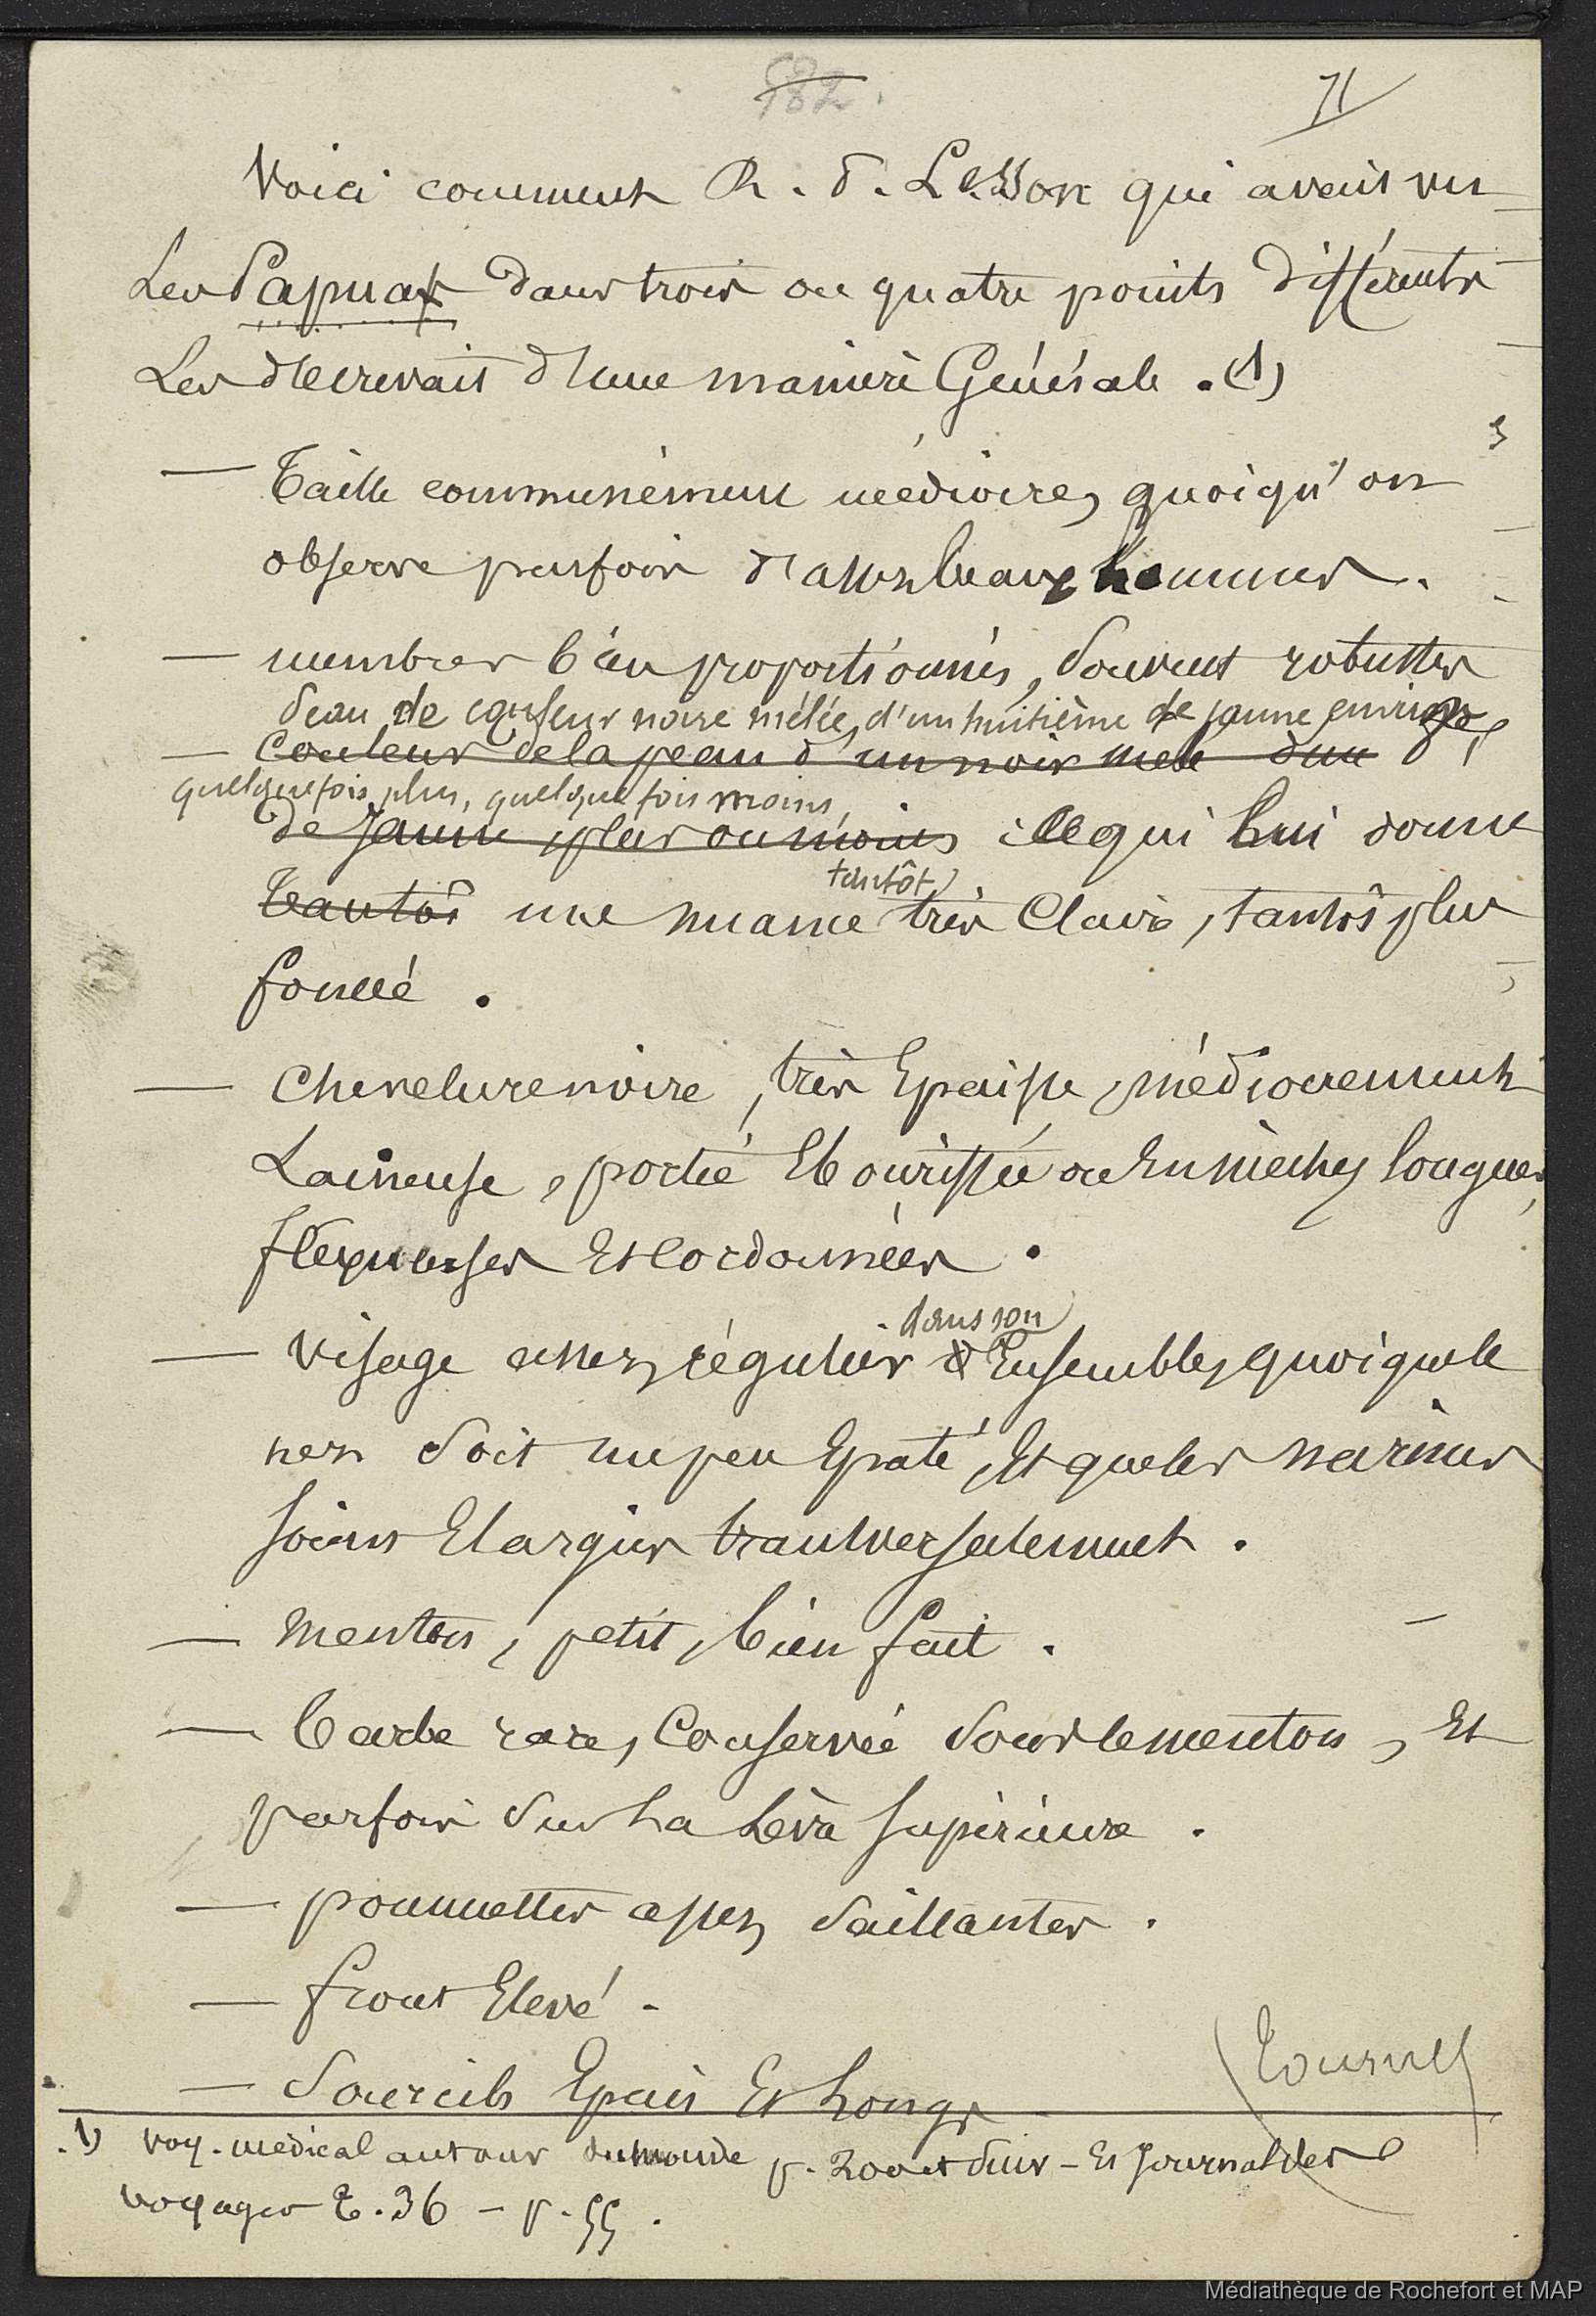 582.
71
Voici comment R. P. Lesson qui avait vu
les Papuas dans trois ou quatre points différents
les décrivait d'une manière Générale . (1)
— Taille communément médiocre, quoiqu'on
observe parfois d'assez beaux hommes .
— membres bien proportionnés, souvent robustes
peau de couleur noire mêlée, d'un huitième de jaune environ,
— Couleur de la peau d'un noir mêlé d'un
quelquefois plus, quelquefois moins,
de Jaune plus ou moins ce qui lui donne
tantôt
Tantôt une nuance très Claire, tantôt plus
foncée .
— Chevelure noire, très Epaisse, médiocrement
Laineuse, portée Ebouriffée ou En mèches longues,
flexueuses Et Cordonnées .
dans son
— Visage assez régulier d'Ensemble, quoique le
nez soit un peu Epaté, Et que les narines
soient Elargies transversalement .
— Menton, petit, bien fait .
— barbe rare, Conservée sous le menton, Et
parfois sur La Lèvre supérieure .
— pommettes assez saillantes .
— front Elevé .
— Sourcils Epais Et Longs
Tournez
1) Voy. médical autour du monde p. 200 et suiv - Et Journal des
voyages T. 36 - p. 55 .
Médiathèque de Rochefort et MAP